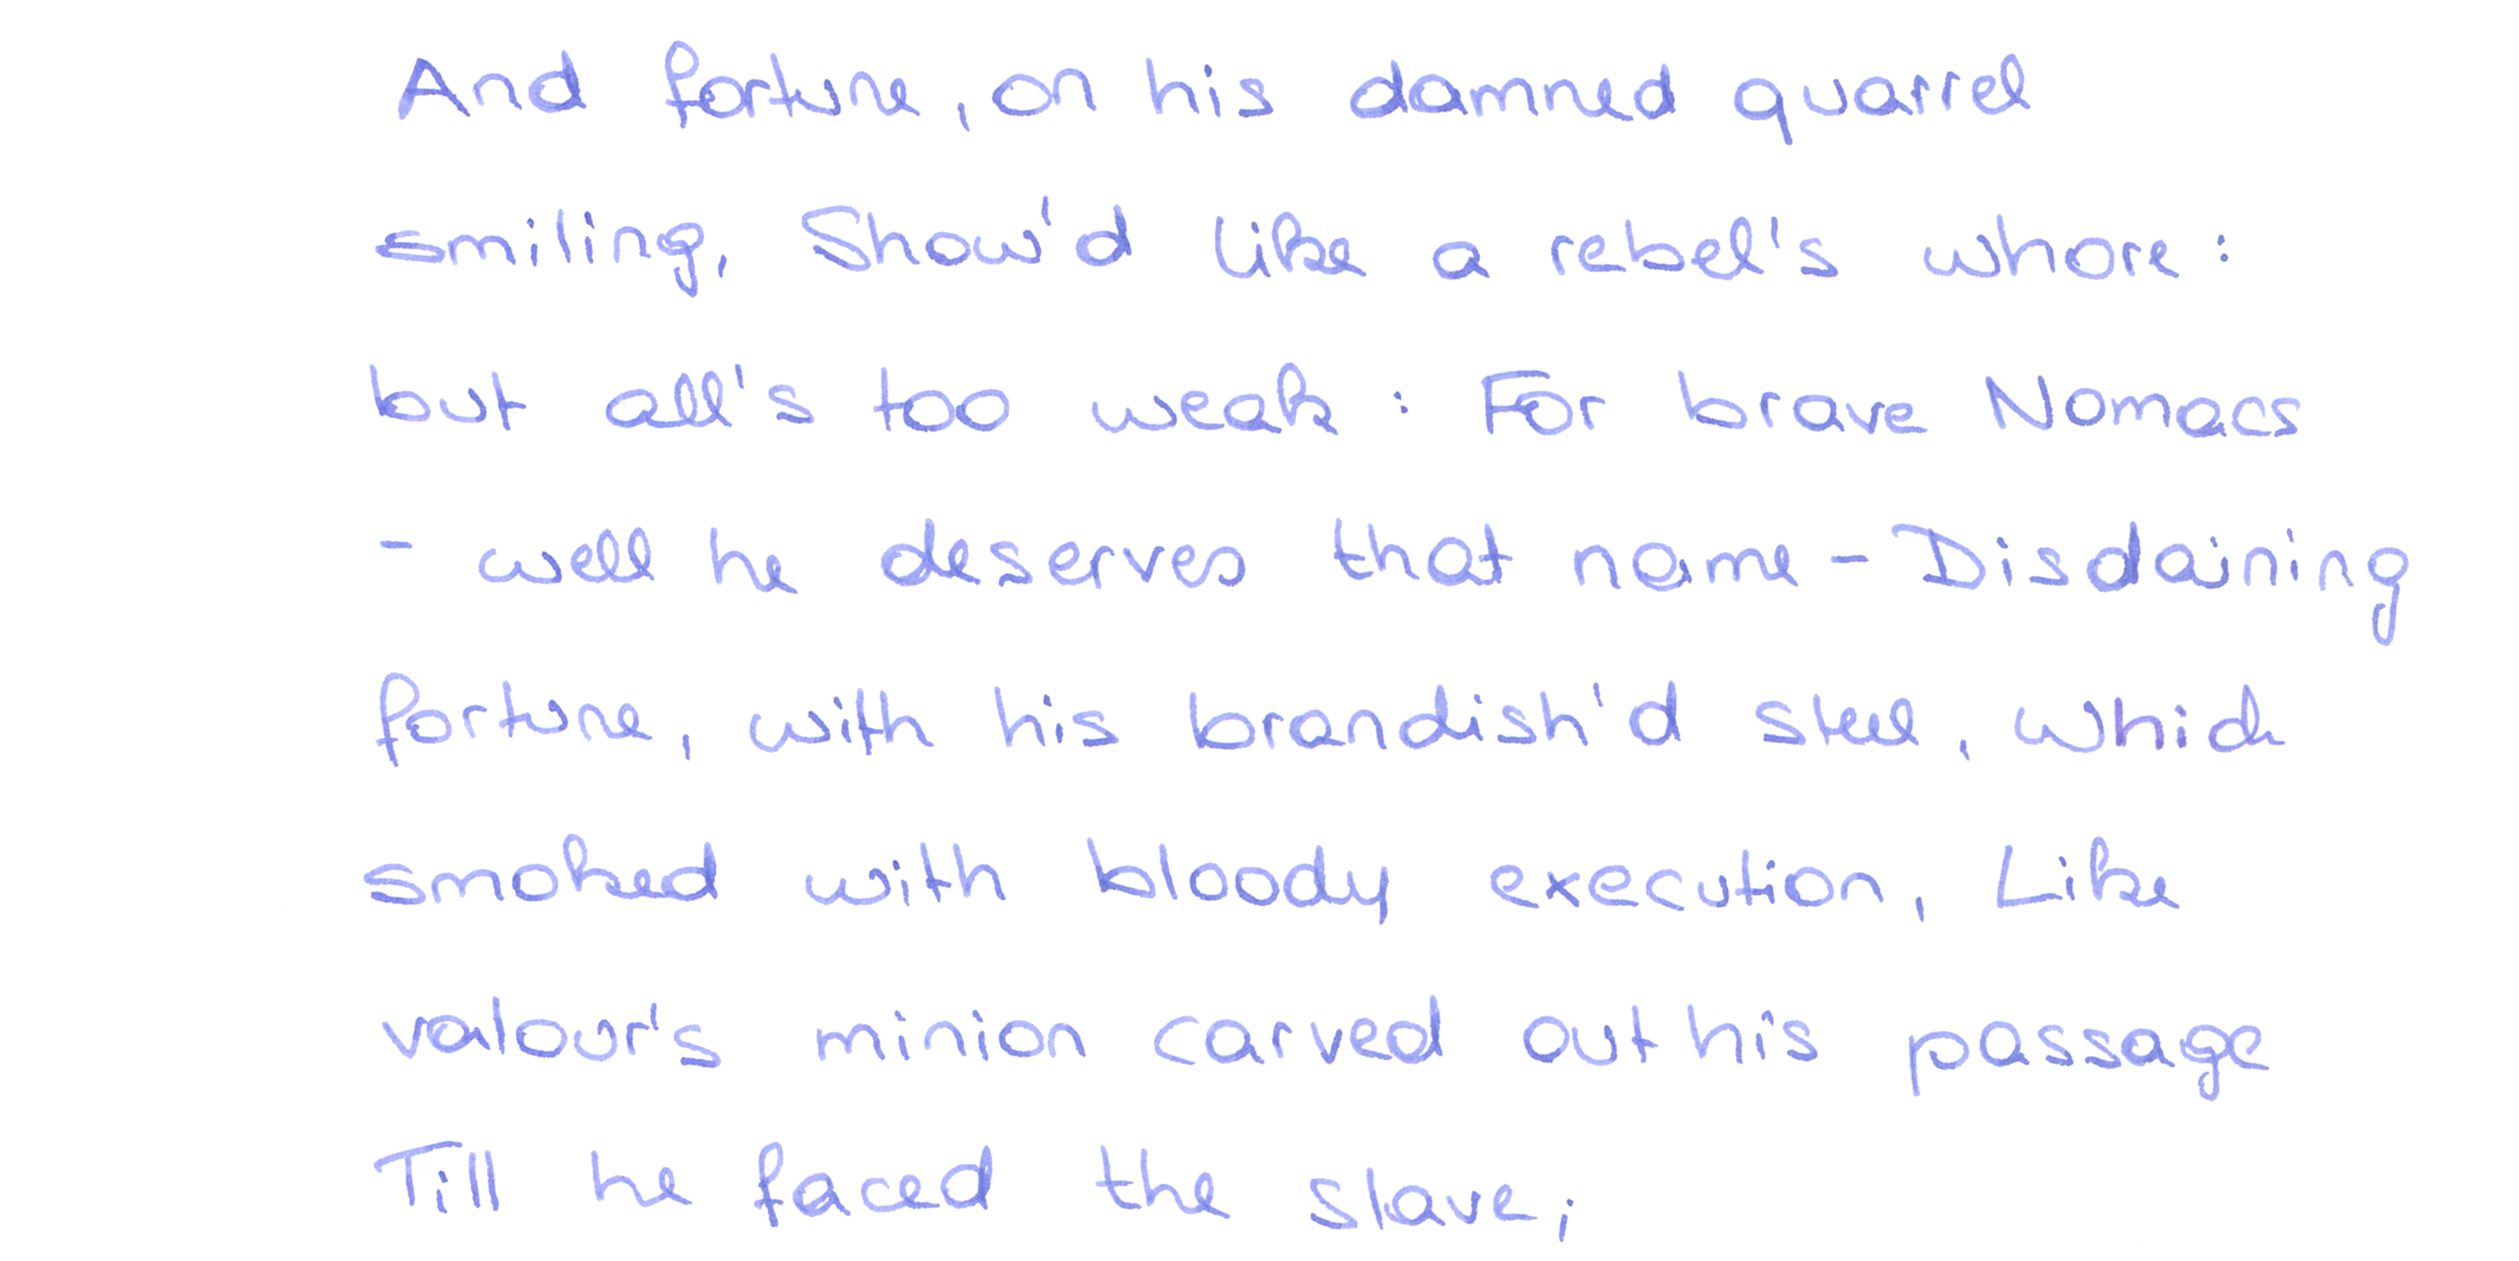 And fortune, on his damned quarrel
smiling, Show'd like a rebel's whore:
but all's too weak: For brave Nomacs
- well he deserves that name - Disdaining
fortune, with his brandish'd steel, which
smoked with bloody execution, Like
valour's minion carved out his passage
Till he faced the slave;